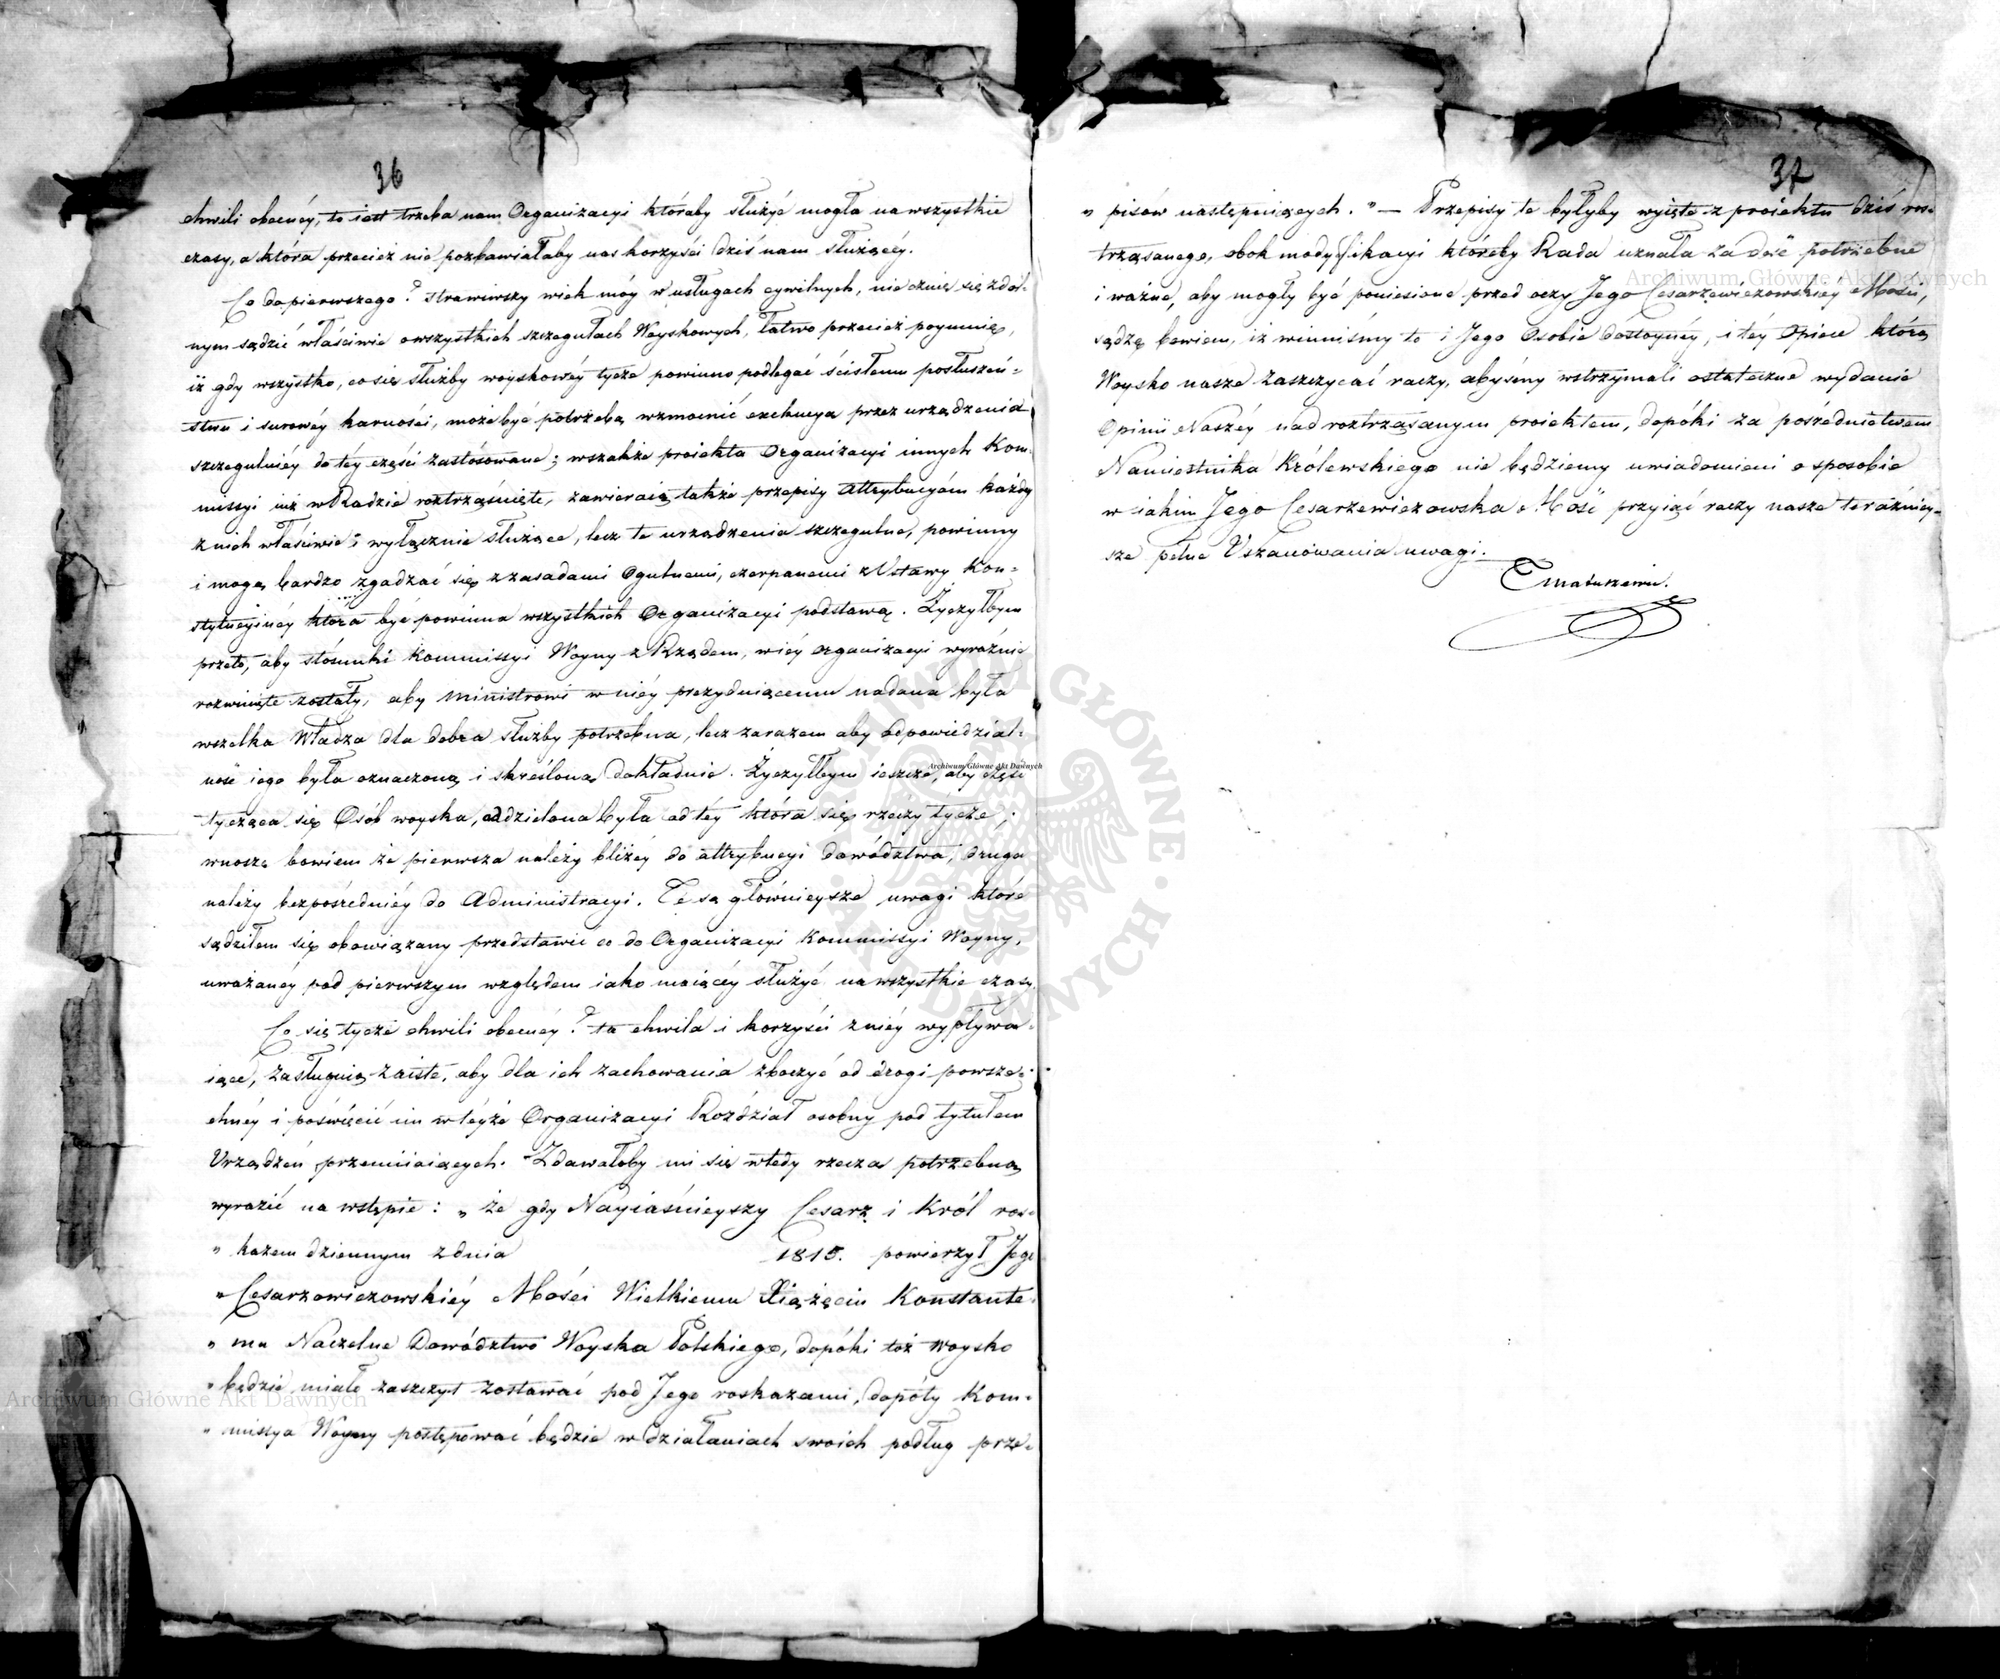 36
chwili obecnéy, to iest trzeba nam Organizacyi któraby służyć mogła na wszystkie
czasy, a która przecież nie pozbawiałaby nas korzyści dziś nam służącéy.
Co do pierwszego? Strawiwszy wiek móy w usługach cywilnych, nie czuię się zdol-
nym sądzić właściwie o wszystkich szczegułach Woyskowych, łatwo przecież poymuię,
iż gdy wszystko, co się służby woyskowéy tycze powinno podlegać ścisłemu posłuszeń-
stwu i surowéy karności, może być potrzebą wzmocnić exekucyą przez urządzenia
szczegulniéy do téy części zastósowane; wszakże proiekta Organizacyi innych Kom-
missyi iuż w Radzie roztrząśnięte, zawieraią także przepisy Attrybucyóm każdéy
z nich właściwie i wyłącznie służące, lecz te urządzenia szczegulne, powinny
i mogą bardzo zgadzać się z zasadami Ogulnemi, czerpanemi z Ustawy Kon-
stytucyinéy która być powinna wszystkich Organizacyi podstawą. Życzyłbym
przeto, aby stósunki Kommissyi Woyny z Rządem, w iéy organizacyi wyraźnie
rozwinięte zostały, aby Ministrowi w niéy prezyduiącemu nadana była
wszelka Władza dla dobra służby potrzebna, lecz zarazem aby odpowiedzial-
ność iego była oznaczoną i skreśloną dokładnie. Życzyłbym ieszcze, aby część
tycząca się Osób woyska, oddzielona była od téy która się rzeczy tycze;
wnoszę bowiem że pierwsza należy bliżéy do attrybucyi dowództwa, druga
należy bezpośredniéy do Administracyi. Te są główniejsze uwagi które
sądziłem się obowiązany przedstawić co do Organizacyi Kommissyi Woyny,
uważanéy pod pierwszym względem iako maiącéy służyć na wszystkie czasy.
Co się tycze chwili obecnéy? ta chwila i korzyści z niéy wypływa-
iące, zasługuią zaiste, aby dla ich zachowania zboczyć od drogi powsze-
chnéy i poświęcić im w téyże Organizacyi Rozdział osobny pod tytułem
Urządzeń przemiiaiących. Zdawałoby mi się wtedy rzeczą potrzebną
wyrazić na wstępie: „że gdy Nayiaśnieyszy Cesarz i Król roz-
„kazem dziennym z dnia 1815. powierzył Jego
„Cesarzewiczowskiéy Mości Wielkiemu Xiążęciu Konstante-
„mu Naczelne Dowództwo Woyska Polskiego, dopóki toż woysko
„będzie miało zaszczyt zostawać pod Jego roskazami, dopóty Kom-
„missya Woyny postępować będzie w działaniach swoich podług prze-
37
„pisów następuiących." — Przepisy te byłyby wyięte z proiektu dziś roz-
trząsanego, obok modyfikacyi któreby Rada uznała za dość potrzebne
i ważne, aby mogły być poniesione przed oczy Jego Cesarzewiczowskiey Mości,
sądzę bowiem, iż winniśmy to i Jego Osobie dostoynéy, i téy Opiece którą
Woysko nasze zaszczycać raczy, abyśmy wstrzymali ostateczne wydanie
Opinii Naszéy nad roztrząsanym proiektem, dopóki za pośrednictwem
Namiestnika Królewskiego nie będziemy uwiadomieni o sposobie
w iakim Jego Cesarzewiczowska Mość przyiąć raczy nasze teraźniey-
sze pełne Uszanowania uwagi.
T Matuszewic.
Archiwum Główne Akt Dawnych
Archiwum Główne Akt Dawnych
Archiwum Główne Akt Dawnych
ARCHIWUM GŁÓWNE · AKT DAWNYCH ·